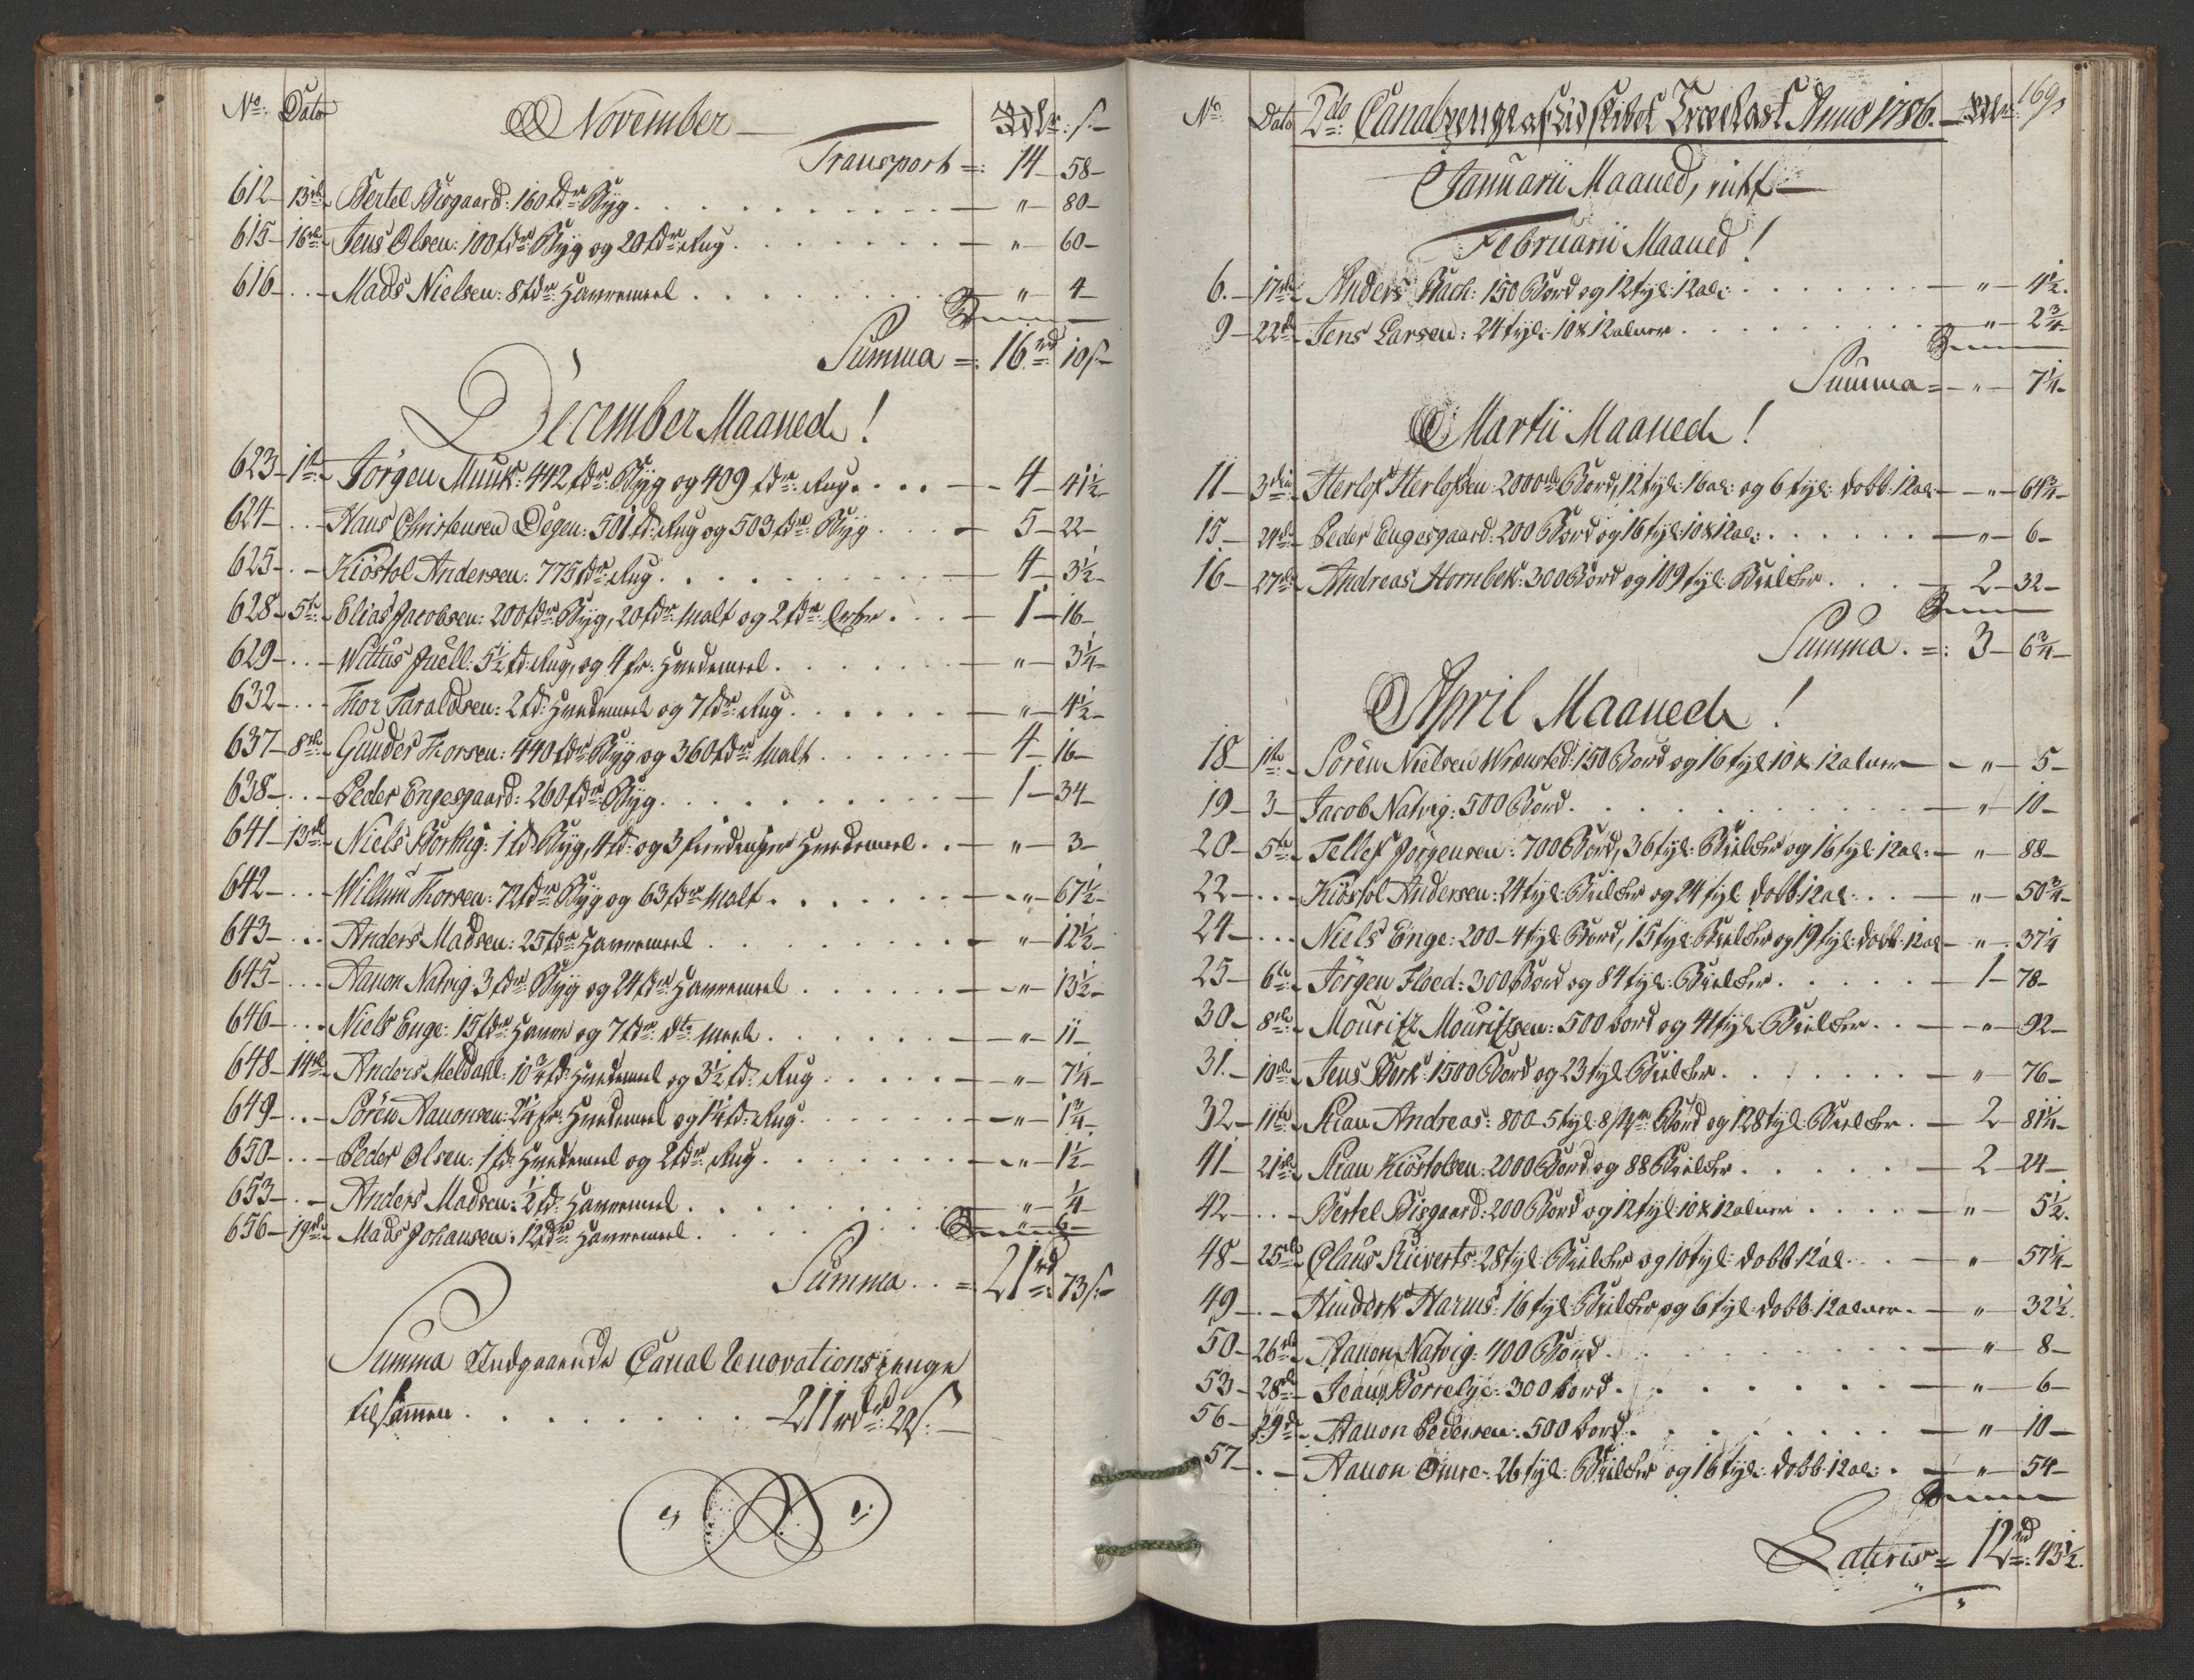 No: Dato November — Rdlr: s.
Transport =: 14 — 58 —
612 — 13de Bertel Bisgaard: 160 tdr Byg — " — 80 —
615 — 16de Jens Olsen: 100 tdr Byg og 20 tdr Rug — " — 60 —
616 — . . — Mads Nielsen: 8 tdr: Havremeel — " — 4 —
Summa =: 16rd: 10 s
December Maaned!
623 — 1te Jörgen Muuk: 442 tdr: Byg og 409 tdr: Rug — 4 — 41½
624 — . . — Hans Christensen Degen: 501 td: Rug og 503 tdr: Byg — 5 — 22 —
625 — . — Kiöstol Andersen: 775 tdr: Rug — 4 — 3½
628 — 5te Elias Jacobsen: 200 tdr: Byg, 20 tdr: Malt og 2 tdr: Erter — 1 — 16 —
629 — . . — Wittus Juell: 5½ td: Rug, og 4 fr: Hvedemeel — " — 3¼
632 — . . — Thor Taraldsen: 2 td: Hvedemeel og 7 tdr: Rug — " — 4½
637 — 8de Gunder Thorsen: 440 tdr Byg og 360 tdr: Malt — 4 — 16 —
638 — . . — Peder Engesgaard: 260 tdr: Byg — 1 — 34 —
641 — 13de Niels : 1 td: Byg, 4 td: og 3 fierdinger Hvedemeel — " — 3 —
642 — . . — Willum Thorsen: 72 tdr Byg og 63 tdr Malt — " — 67½
643 — . . Anders Madsen: 25 tdr: Havremeel — " — 12½
645 — . . . Aanon Natvig: 3 tdr: Byg og 24 tdr: Havremeel — " — 13½
646 — . . . Niels Enge: 15 tdr: Havre og 7 tdr: dto meel — " — 11 —
648 — 14de Anders Meldahl: 10¾ td: Hvedemeel og 3½ td: Rug — " — 7¼
649 — . . — Sören Aanonsen: 2¼ fr: Hvedemeel og 1¼ td: Rug — " — 1¾
650 — . . — Peder Olsen: 1 td: Hvedemeel og 2 tdr: Rug — " — 1½
653 — . — Anders Madsen: ½ td: Havremeel — " — ¼
656 — 19de Mads Johansen: 12 tdr: Havremeel — " — 6 —
Summa . . = 21rd: 73 s
Summa Indgaaende Canal Renovationspenge
tilsammen . . . — 211 rdr: 22 s: —
169.
No: Dato 2do: Canalpenge af Udskibet Trælast Anno 1786. — Rdlr:
Januarii Maaned, intet —
Februarii Maaned!
6. — 17de Anders Bach: 150 Bord og 12 tyl: 12 al: — " — 4½.
9 — 22de Jens Larsen: 24 tyl: 10 & 12 alner — " — 2¾
Summa = — " — 7¼
Martii Maaned!
11 — 3die Herlof Herlofsen: 2000de Bord, 12 tyl: 16 al: og 6 tyl: dobb: 12 al: — " — 64¾
15 — 24de Peder Engesgaard: 200 Bord og 16 tyl: 10 & 12 al: — " — 6 —
16 — 27de Andreas Hornbek: 300 Bord og 109 tyl: Bielcker — 2 — 32 —
Summa . =: 3 — 6¾
April Maaned!
18 — 1te Sören Nielsen Wrensted: 150 Bord og 16 tyl 10 & 12 alner — " — 5 —
19 — 3 — Jacob Natvig: 500 Bord — " — 10 —
20 — 5te Tellef Jörgensen: 700 Bord, 36 tyl: Bielcker og 16 tyl: 12 al: — " — 88 —
22 — . . . Kiöstol Andersen: 24 tyl: Bielcker og 24 tyl dobb 12 al: — " — 50¾
24 — . . . Niels Enge: 200 — 4 tyl: Bord, 15 tyl: Bielcker og 19 tyl: dobb: 12 al — " — 37¼
25 — 6te Jörgen Floed: 300 Bord og 84 tyl: Bielcker — 1 — 78 —
30 — 8de Mouritz Mouritzsen: 500 bord og 41 tyl: Bielcker — " — 92 —
31. — 10de Jens Bork: 1500 Bord og 23 tyl Bielcker — " — 76 —
32 — 11te Stian Andreas: 800 — 5 tyl: 8/4r Bord og 128 tyl: Bielcker — 2 — 81¼
41 — 21de Stian Kiöstolsen: 2000 Bord og 88 Bielcker — 2 — 24 —
42 — . . — Bertel Bisgaard: 200 Bord og 12 tyl: 10 & 12 alner — " — 5½.
48 — 25de Claus Sieverts: 28 tyl: Bielcker og 10 tyl: dobb 12 al — " — 57¼
49 — . . — Hinderk Harms: 16 tyl: Bielcker og 6 tyl: dobb: 12 alner — " — 32½
50 — 26de Aanon Natvig: 400 Bord — " — 8 —
53 — 28de Jens : 300 bord — " — 6 —
56 — 29de Aanon Pedersen: 500 bord — " — 10 —
57 — . — Aanon : 26 tyl: Bielcker og 16 tyl: dobb: 12 al: — " — 54 —
Lateris = 12rd: 43½.